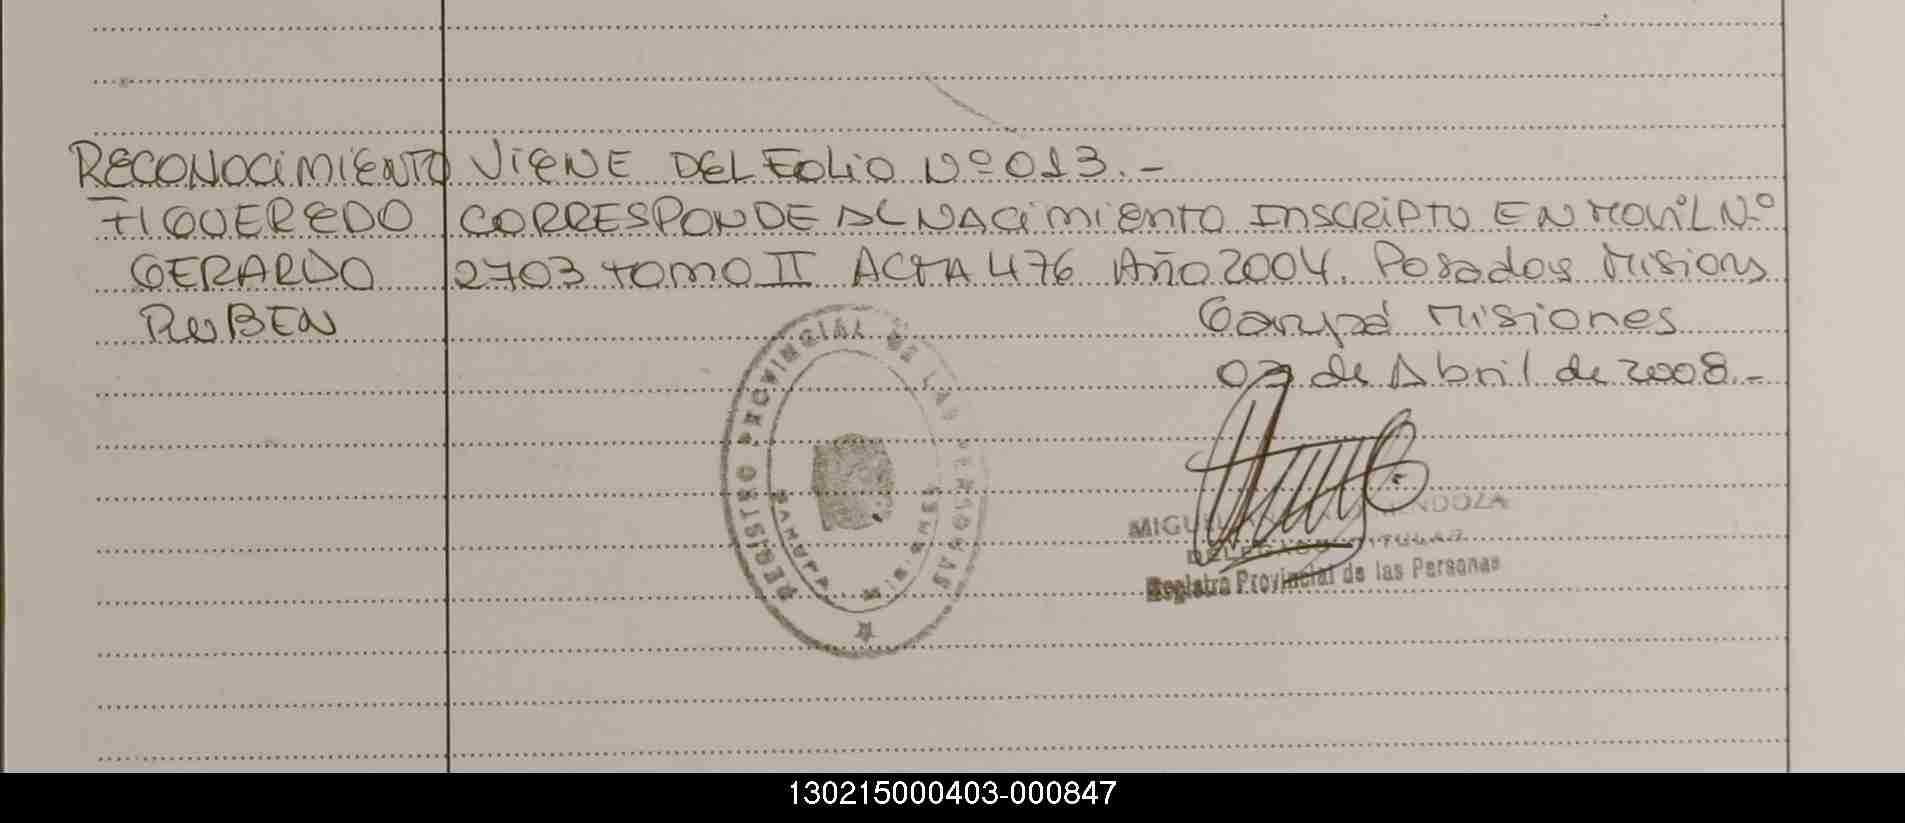 RECONOCIMIENTO VIENE DEL FOLIO Nº 013.-
FIGUEREDO CORRESPONDE AL NACIMIENTO INSCRIPTO EN MOVIL Nº
GERARDO 2703 TOMO II ACTA 476 Año 2004. Posadas Misiones
RUBEN Garupá Misiones
de Abril de 2008.-
REGISTRO PROVINCIAL DE LAS PERSONAS
GARUPA MISIONES
MIGUEL MENDOZA
DELEGADO TITULAR
Registro Provincial de las Personas
130215000403-000847